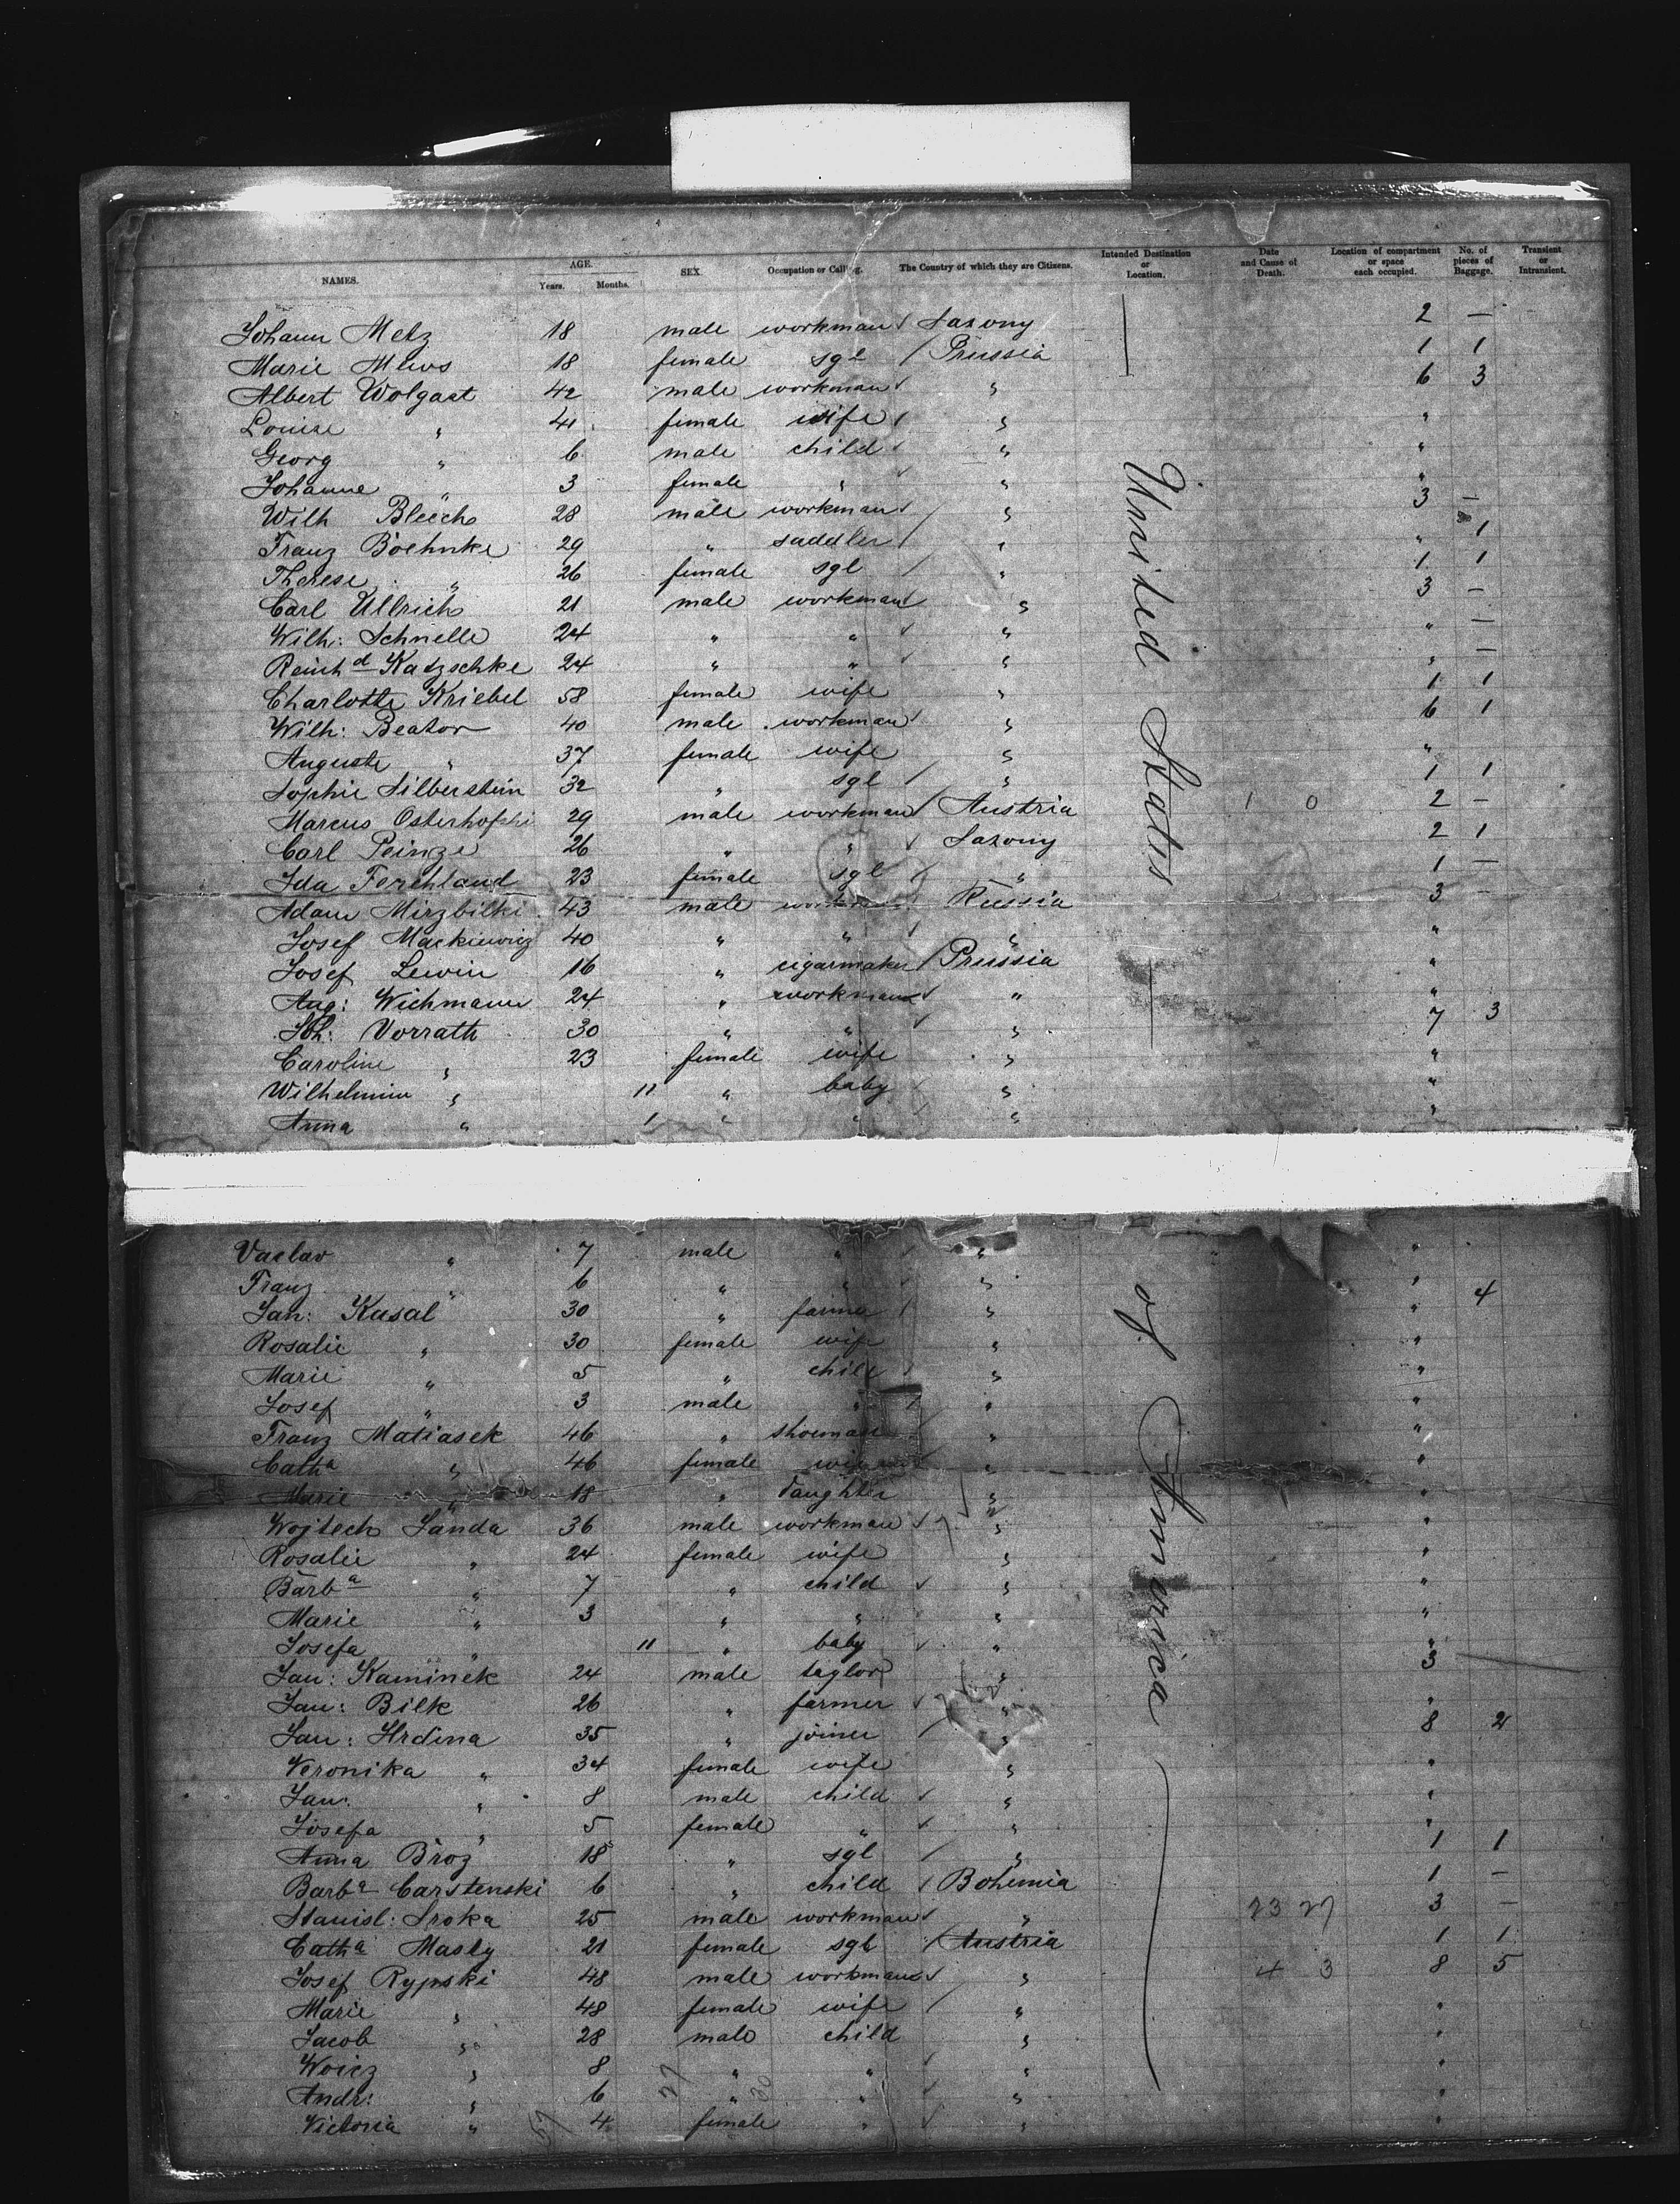 NAMES. AGE. Years. Months. SEX. Occupation or Calling. The Country of which they are Citizens. Intended Destination or Location. Date and Cause of Death. Location of compartment or space each occupied. No. of pieces of Baggage. Transient or Intransient.
Johann Metz 18 male workman Saxony 2 —
Marie Mews 18 female sgl Prussia 1 1
Albert Wolgast 42 male workman " 6 3
Louise " 41 female wife " "
Georg " 6 male child " "
Johanne " 3 female " " "
Wilh Bleech 28 male workman " 3 —
Franz Boehnke 29 " saddler " " 1
Therese " 26 female sgl " 1 1
Carl Ullrich 21 male workman " 3 —
Wilh: Schnelle 24 " " " " —
Reinhd Katzschke 24 " " " " —
Charlotte Kriebel 58 female wife " 1 1
Wilh: Beator 40 male workman " 6 1
Auguste " 37 female wife " "
Sophie Silberstein 32 " sgl " 1 1
Marcus Osterhofski 29 male workman Austria 1 0 2 —
Carl Peinze 26 " " Saxony 2 1
Ida Forchland 23 female sgl " 1 —
Adam Mirzbilki 43 male Russia 3 —
Josef Mackiewicz 40 " " " "
Josef Lewin 16 " cigarmaker Prussia "
Aug: Wichmann 24 " workman " "
Joh: Vorrath 30 " " " 7 3
Caroline " 23 female wife " "
Wilhelmine " 11 " baby " "
Anna " 1 " " " "
United States
Vaclav " 7 male " " "
Franz " 6 " " " "
Jan: Kasal 30 " farmer " " 4
Rosalie " 30 female wife " "
Marie " 5 " child " "
Josef " 3 male " " "
Franz Matiasek 46 " " "
Catha " 46 female wife " "
Marie " 18 " daughter " "
Wojtech Landa 36 male workman " "
Rosalie " 24 female wife " "
Barba " 7 " child " "
Marie " 3 " " " "
Josefa " 11 " baby " "
Jan: Kaminek 24 male taylor " 3 —
Jan: Bilk 26 " farmer " "
Jan: Hrdina 35 " joiner " 8 2
Veronika " 34 female wife " "
Jan: " 8 male child " "
Josefa " 5 female " " "
Anna Broz 18 " sgl " 1 1
Barba Carstenski 6 " child Bohemia 1 —
Stanisl: Sroka 25 male workman " 23 27 3 —
Catha Masly 21 female sgl Austria 1 1
Josef Rypski 48 male workman " 4 3 8 5
Marie " 48 female wife " "
Jacob " 28 male child " "
Woicz " 8 " " " "
Andr: " 6 " " " "
Victoria " 4 female " " "
of America
27 30
57